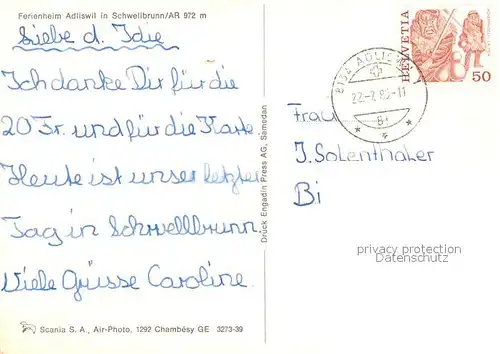 Ferienheim Adliswil in Schwellbrunn/AR 972 m
Liebe d. Idie
Ich danke Dir für die
20 Fr. und für die Karte
Heute ist unser letzter
Tag in Schwellbrunn.
Viele Grüsse Caroline.
Scania S. A., Air-Photo, 1292 Chambésy GE 3273-39
Druck Engadin Press AG, Samedan
8134 ADLISWIL
22.-7.80-11
HELVETIA
50
Frau
I. Solenthaler
Bi
privacy protection
Datenschutz